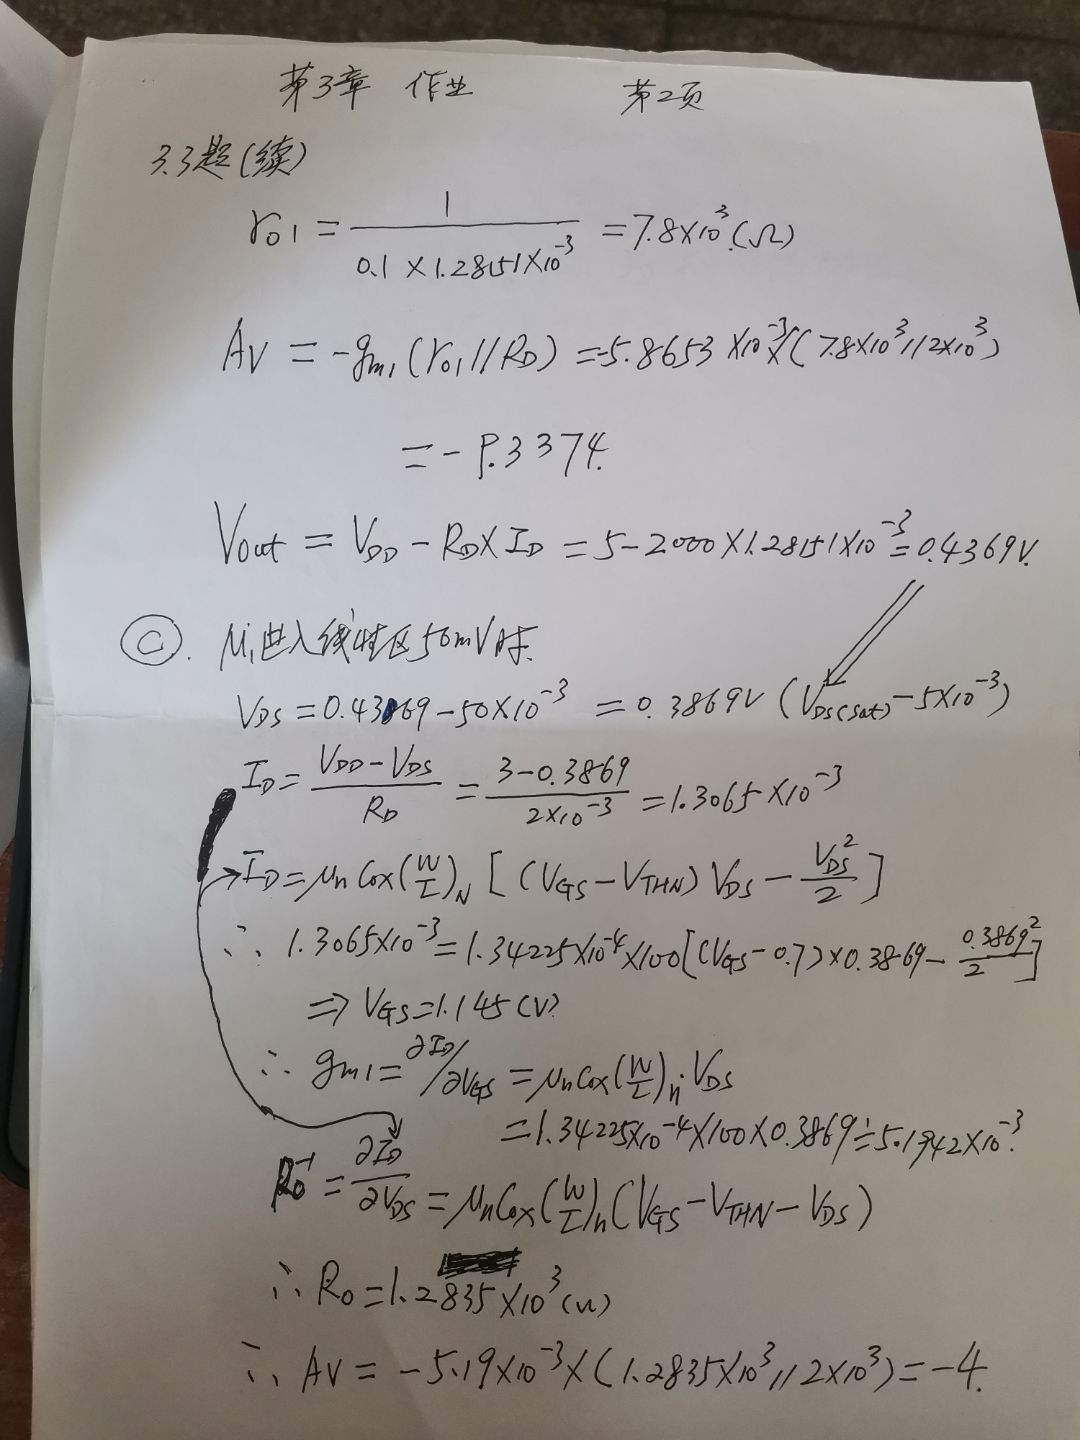 第3章 作业 第2页
3.3题(续)
r₀₁ = 1 / (0.1 × 1.28151×10⁻³) = 7.8×10³(Ω)
Av = -gm₁(r₀₁//R_D) = -5.8653×10⁻³×(7.8×10³//2×10³)
= -9.3374.
Vout = V_DD - R_D×I_D = 5-2000×1.28151×10⁻³ = 0.4369V.
ⓒ. M₁进入线性区50mV时.
V_DS = 0.43869-50×10⁻³ = 0.3869V (V_DS(sat)-5×10⁻³)
I_D = (V_DD-V_DS)/R_D = (3-0.3869)/(2×10⁻³) = 1.3065×10⁻³
I_D = μnCox(W/L)_N [(V_GS-V_THN)V_DS - V_DS²/2]
∴ 1.3065×10⁻³ = 1.34225×10⁻⁴×100[(V_GS-0.7)×0.3869 - 0.3869²/2]
⇒ V_GS=1.145(V)
∴ gm₁ = ∂I_D/∂V_GS = μnCox(W/L)n·V_DS
= 1.34225×10⁻⁴×100×0.3869 ≐ 5.1942×10⁻³.
R₀⁻¹ = ∂I_D/∂V_DS = μnCox(W/L)n(V_GS-V_THN-V_DS)
∴ R₀ = 1.2835×10³(Ω)
∴ Av = -5.19×10⁻³×(1.2835×10³//2×10³) = -4.